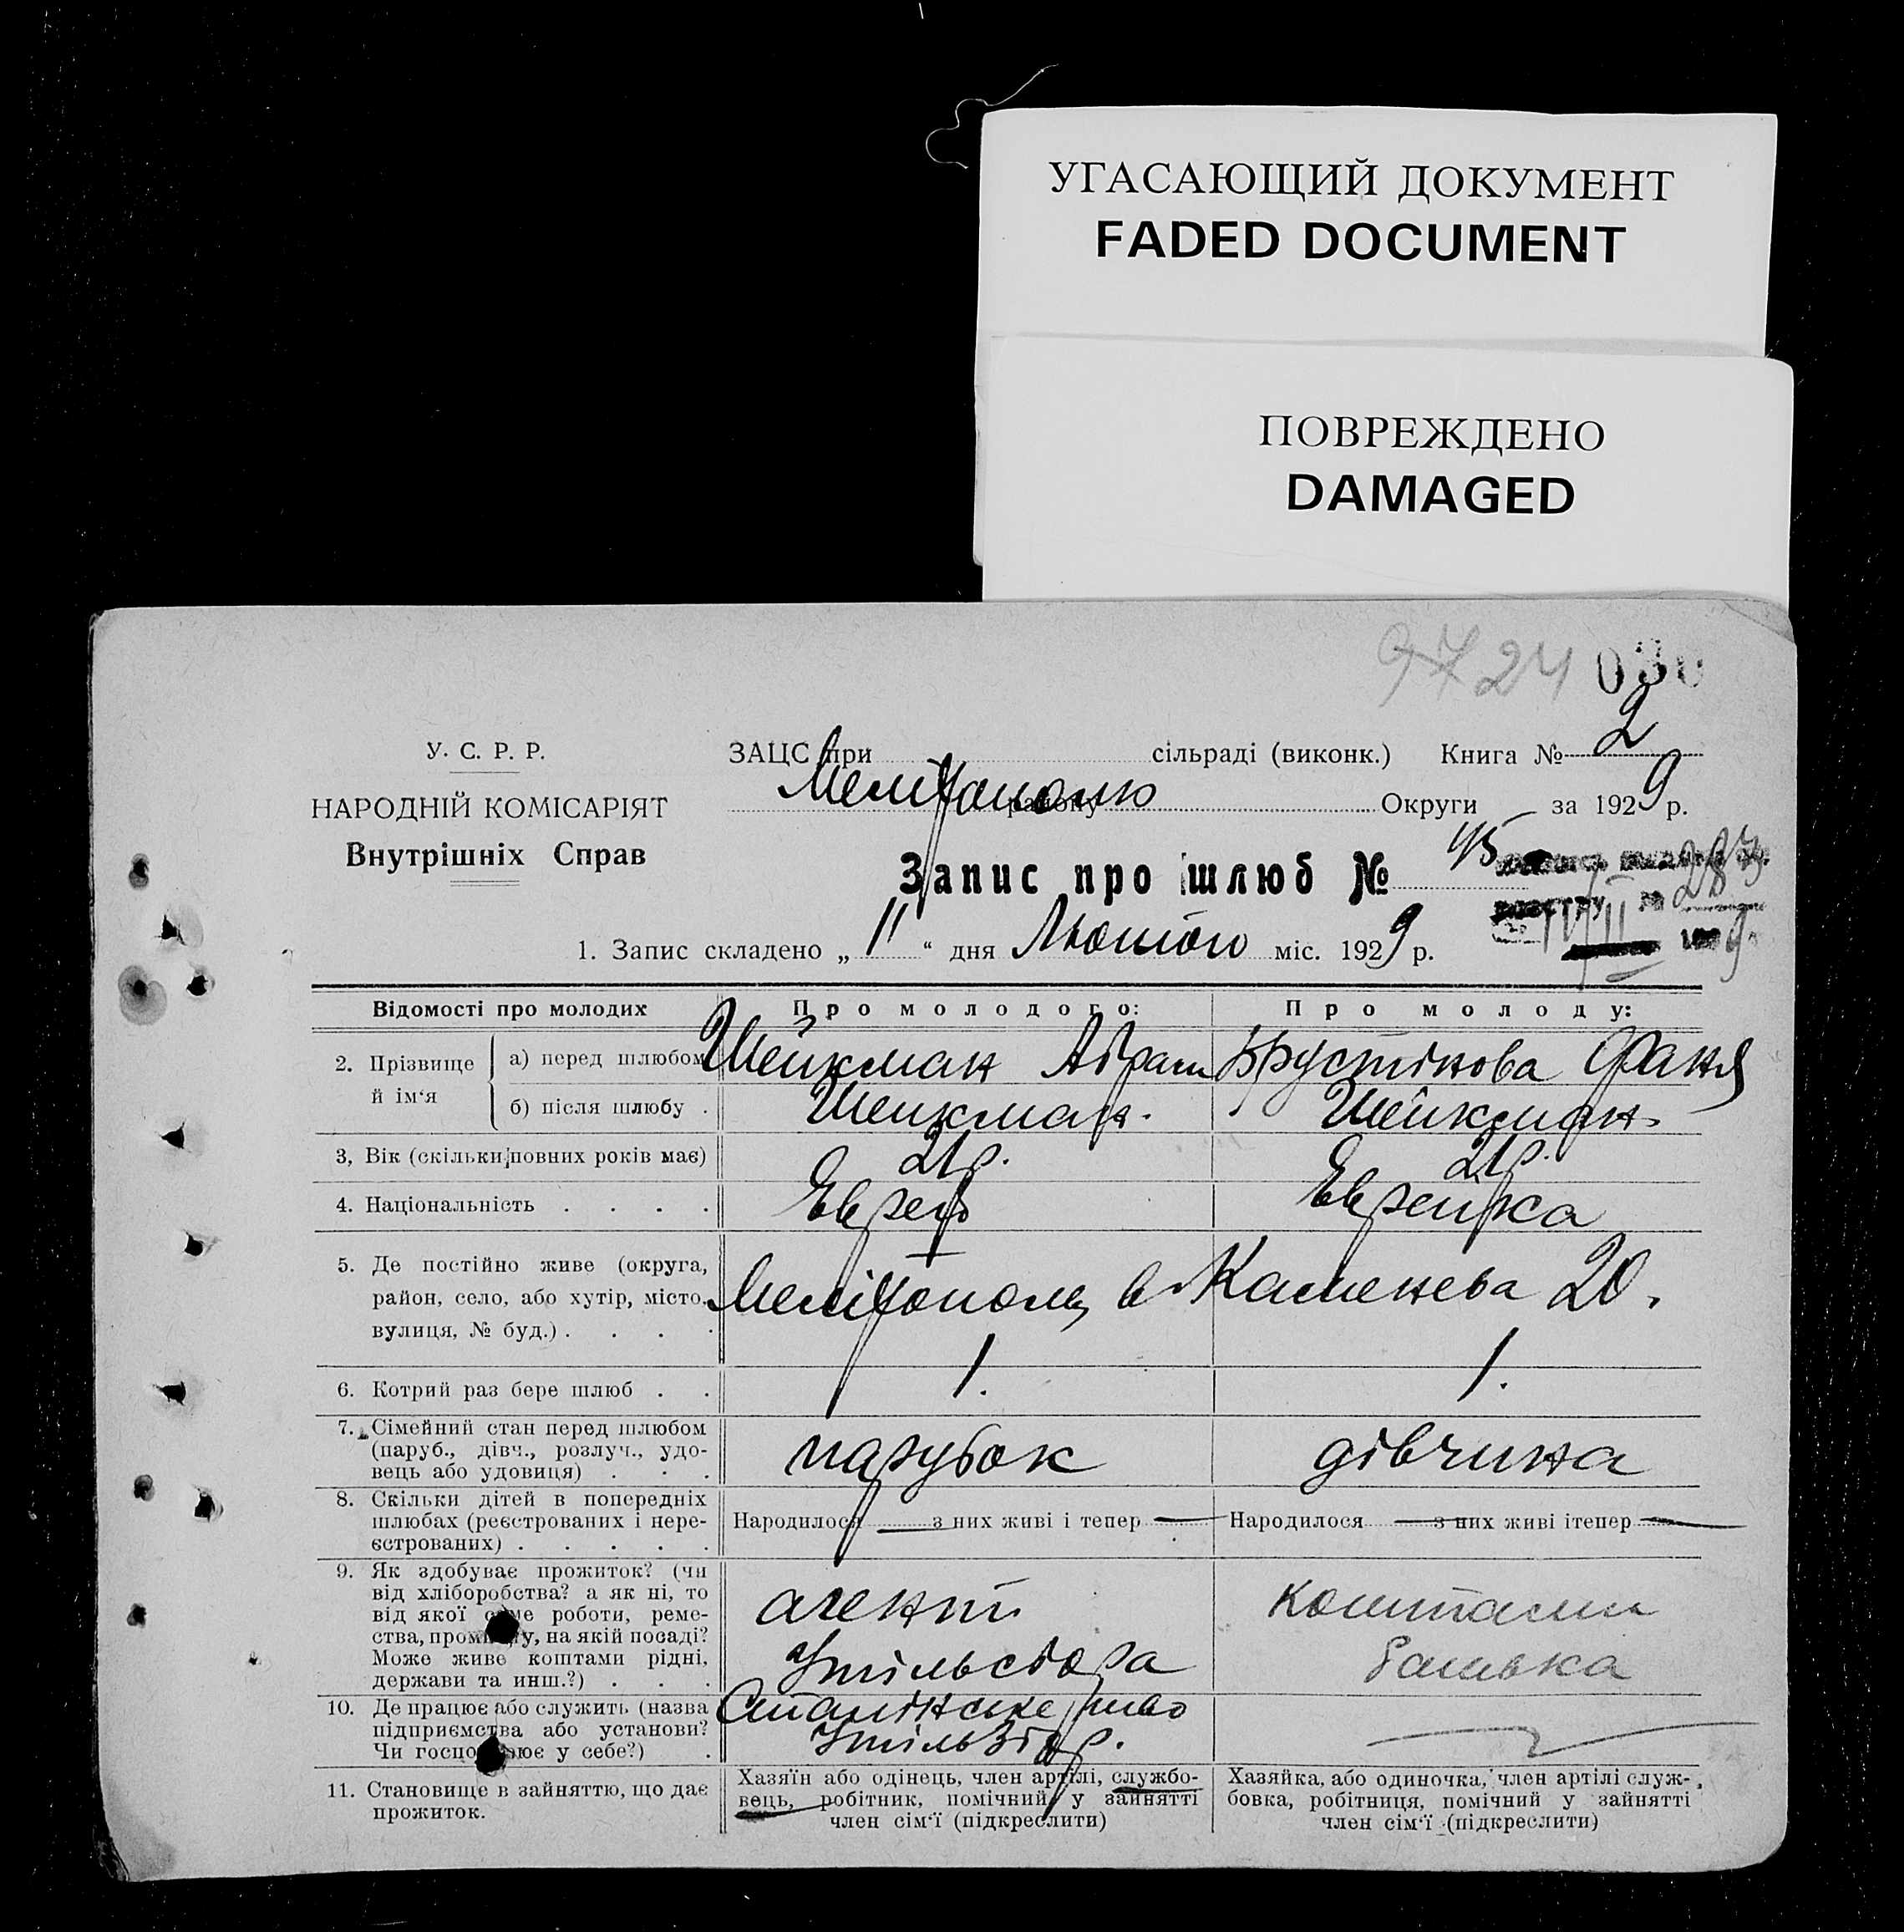 УГАСАЮЩИЙ ДОКУМЕНТ
FADED DOCUMENT
ПОВРЕЖДЕНО
DAMAGED
9724 030
У. С. Р. Р.
НАРОДНІЙ КОМІСАРІЯТ
Внутрішніх Справ
ЗАЦС при сільраді (виконк.) Книга № 2
Мелітополю району Округи за 1929 р.
Запис про шлюб № 45
1. Запис складено „ 11 “ дня Лютого міс. 1929 р.
Відомості про молодих Про молодого: Про молоду:
2. Прізвище й ім‘я а) перед шлюбом Шейкман Абрам Фаня
б) після шлюбу . Шейкман. Шейкман.
3, Вік (скільки повних років має) 21 р. 21 р.
4. Національність . . . . Еврей Еврейка
5. Де постійно живе (округа,
район, село, або хутір, місто, Мелітополь, в. Каменева 20.
вулиця, № буд.) . . . .
6. Котрий раз бере шлюб . . 1. 1.
7. Сімейний стан перед шлюбом
(паруб., дівч., розлуч., удо-
вець або удовиця) . . . парубок дівчина
8. Скільки дітей в попередніх
шлюбах (реєстрованих і нере-
єстрованих) . . . . .
Народилося — з них живі і тепер — Народилося — з них живі ітепер —
9. Як здобуває прожиток? (чи
від хліборобства? а як ні, то
від якої саме роботи, реме-
ства, промислу, на якій посаді?
Може живе коштами рідні,
держави та инш.?) . . .
агент
Утільсбора
коштами
батька
10. Де працює або служить (назва
підприємства або установи?
Чи господарює у себе?) .
Сталінське
Утільзбор.
11. Становище в зайняттю, що дає
прожиток.
Хазяїн або одінець, член артілі, службо-
вець, робітник, помічний у зайнятті
член сім‘ї (підкреслити)
Хазяйка, або одиночка, член артілі служ-
бовка, робітниця, помічний у зайнятті
член сім‘ї (підкреслити)